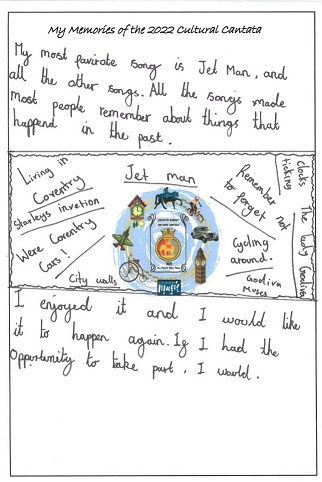 My Memories of the 2022 Cultural Cantata
My most favirate song is Jet Man, and
all the other songs. All the songs made
most people remember about things that
happend in the past.
Living in
Coventry
Starleys invetion
Were Coventry
Cars!
City walls
Jet man
Remember not
to forget
Cycling
around.
Godiva
Muses
clocks
ticking
The lady Godiva
Music
I enjoyed it and I would like
it to happen again. If I had the
Opportunity to take part, I would.